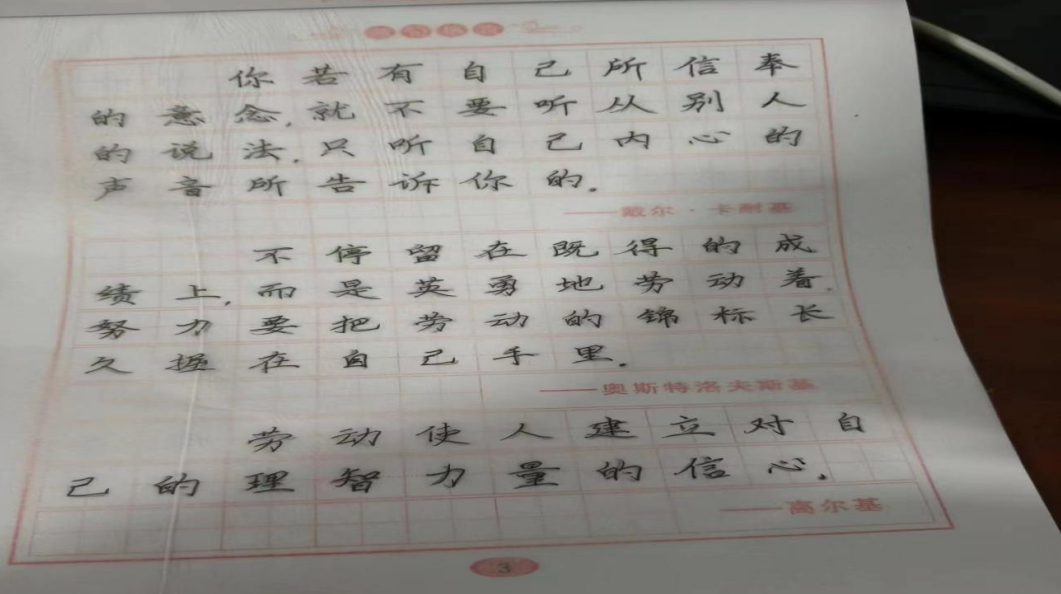 你若有自己所信奉
的意念,就不要听从别人
的说法,只听自己内心的
声音所告诉你的。
——戴尔·卡耐基
不停留在既得的成
绩上,而是英勇地劳动着,
努力要把劳动的锦标长
久握在自己手里。
——奥斯特洛夫斯基
劳动使人建立对自
己的理智力量的信心。
——高尔基
3